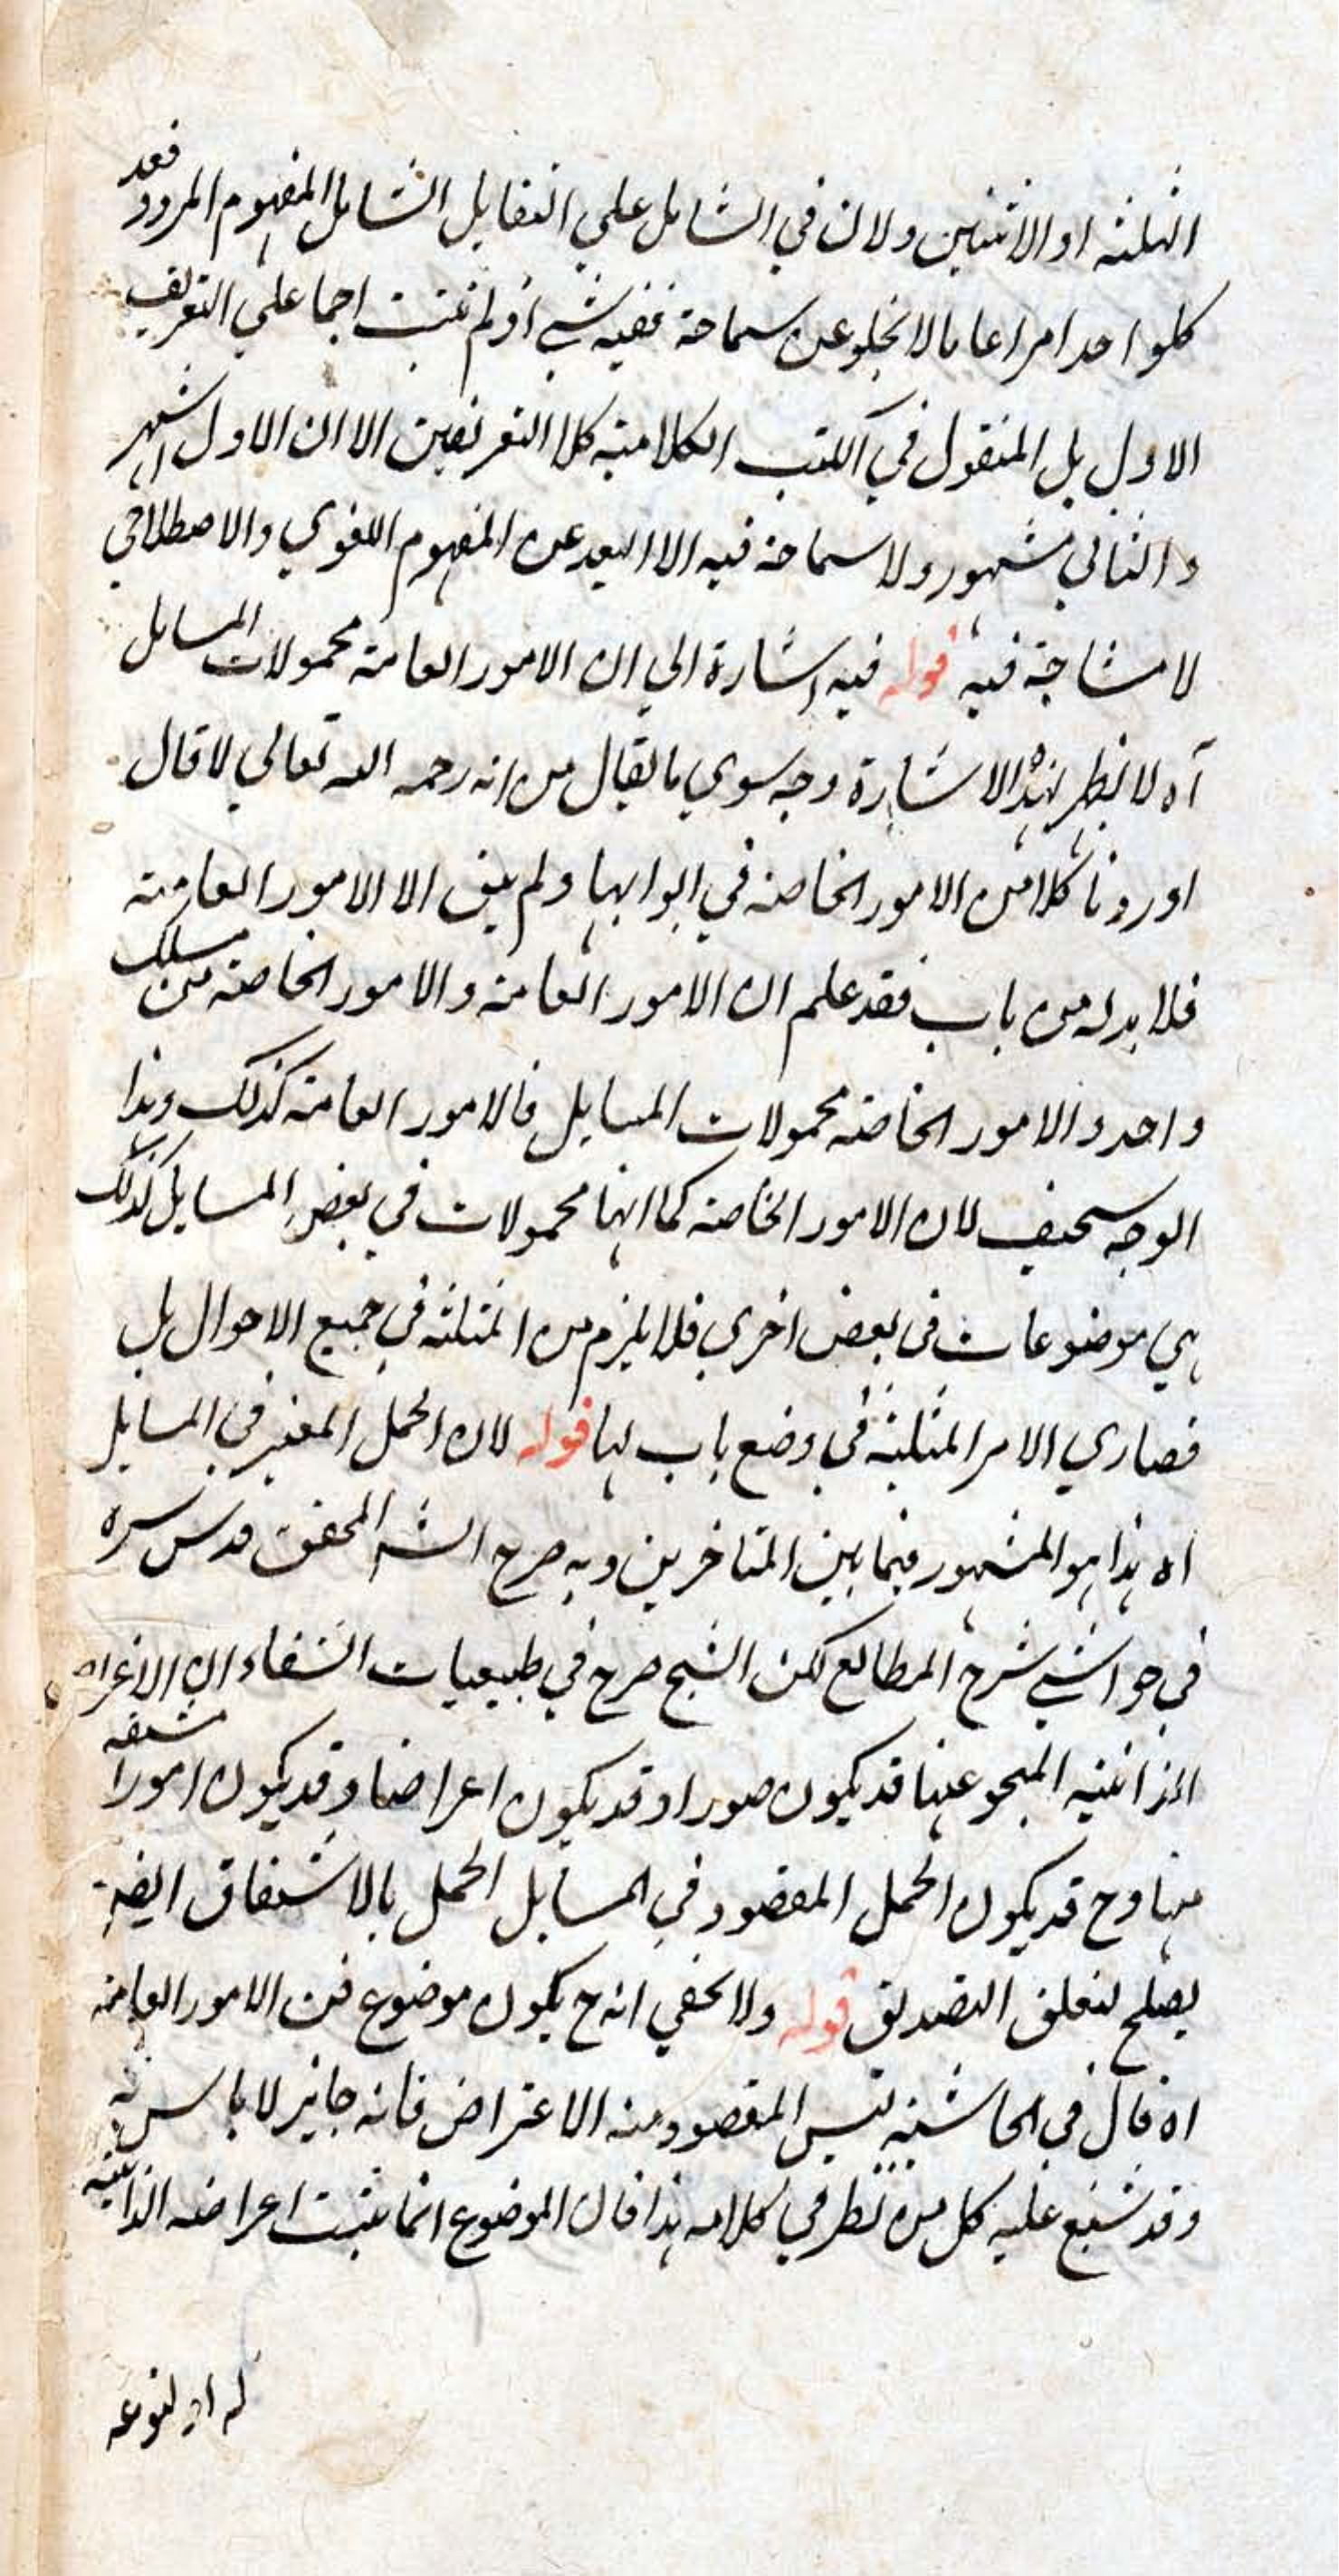 الثلثه او الاثنين ولان في الشامل علي التقابل الشامل المفهوم المردود فعد
كلواحد امرا عاما لا يخلو عن سماحة ففيه شي اذ لم يثبت اجماعلي التعريف
الاول بل المنقول في الكتب الكلامية كلا التعريفين الا ان الاول اشهر
والثاني مشهور ولا سماحة فيه الا البعد عن المفهوم اللغوي والاصطلاحي
لا مشاحة فيه قوله فيه اشارة الي ان الامور العامة محمولات المسايل
آه لا يظهر لهذه الاشارة وجه سوي ما يقال من انه رحمه الله تعالي لما قال
اوردنا كلا من الامور الخاصة في ابوابها ولم يبق الا الامور العامة
فلا بد له من باب فقد علم ان الامور العامة والامور الخاصة من مسلك
واحد والامور الخاصة محمولات المسايل فالامور العامة كذلك وهذا
الوجه سخيف لان الامور الخاصة كما انها محمولات في بعض المسايل كذلك
هي موضوعات في بعض اخري فلا يلزم من المثلثه في جميع الاحوال بل
قصاري الامر المثلثة في وضع باب لها قوله لان الحمل المعتبر في المسايل
اه هذا هو المشهور فيما بين المتاخرين وبه صرح الشه المحقق قدس سره
في حواشي شرح المطالع لكن الشيخ صرح في طبيعيات الشفاء ان الاعراض
الذاتية المبحو عنها قد يكون صورا وقد يكون اعراضا وقد يكون امورا مشتقه
منها وح قد يكون الحمل المقصود في المسايل الحمل بالاشتقاق ايضه
يصلح لتعلق التصديق قوله ولا يخفي انه ح يكون موضوع فن الامور العامة
اه قال في الحاشية ليس المقصود منه الاعتراض فانه جايز لا باس به
وقد شنع عليه كل من نظر في كلامه هذا فان الموضوع انما يثبت اعراضه الذاتية
له او لنوعه